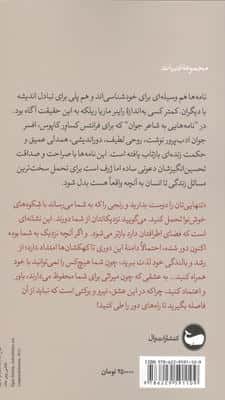 مجموعهٔ ادبیات
نامه‌ها هم وسیله‌ای برای خودشناسی‌اند و هم پلی برای تبادل اندیشه
با دیگران. کمتر کسی به‌اندازهٔ راینر ماریا ریلکه به این حقیقت آگاه بود.
در "نامه‌هایی به شاعر جوان" که برای فرانتس کساور کاپوس، افسر
جوان ادب‌پرور نوشت، روحی لطیف، دوراندیشی، همدلی عمیق و
حکمت زنده‌ای بازتاب یافته است. این نامه‌ها با صراحت و صداقت
تحسین‌انگیزشان دعوتی ساده اما ژرف است برای تحمل سخت‌ترین
مسائل زندگی تا انسان به آنچه واقعاً هست بدل شود.
تنهایی‌تان را دوست بدارید و رنجی را که به شما می‌رساند با شکوه‌های
خوش‌نوا تحمل کنید. می‌گویید نزدیکانتان از شما دورند. این نشانه‌ای
است که فضای اطرافتان دارد بازتر می‌شود. و اگر آنچه نزدیک به شما بوده
اکنون دور شده، احتمالاً دامنهٔ این دوری تا کهکشان‌ها امتداد دارد؛ از
رشد و بالندگی خود لذت ببرید، چون شما هیچ‌کس را نمی‌توانید با خود
همراه کنید... به عشقی که چون میراثی برای شما محفوظ می‌دارند، باور
و اعتماد کنید، چراکه در این عشق نیرو و برکتی است که نباید از آن
فاصله بگیرید تا راه‌های دور را طی کنید!
ISBN: 978-622-9591-10-9
9 786229 591109
تومان